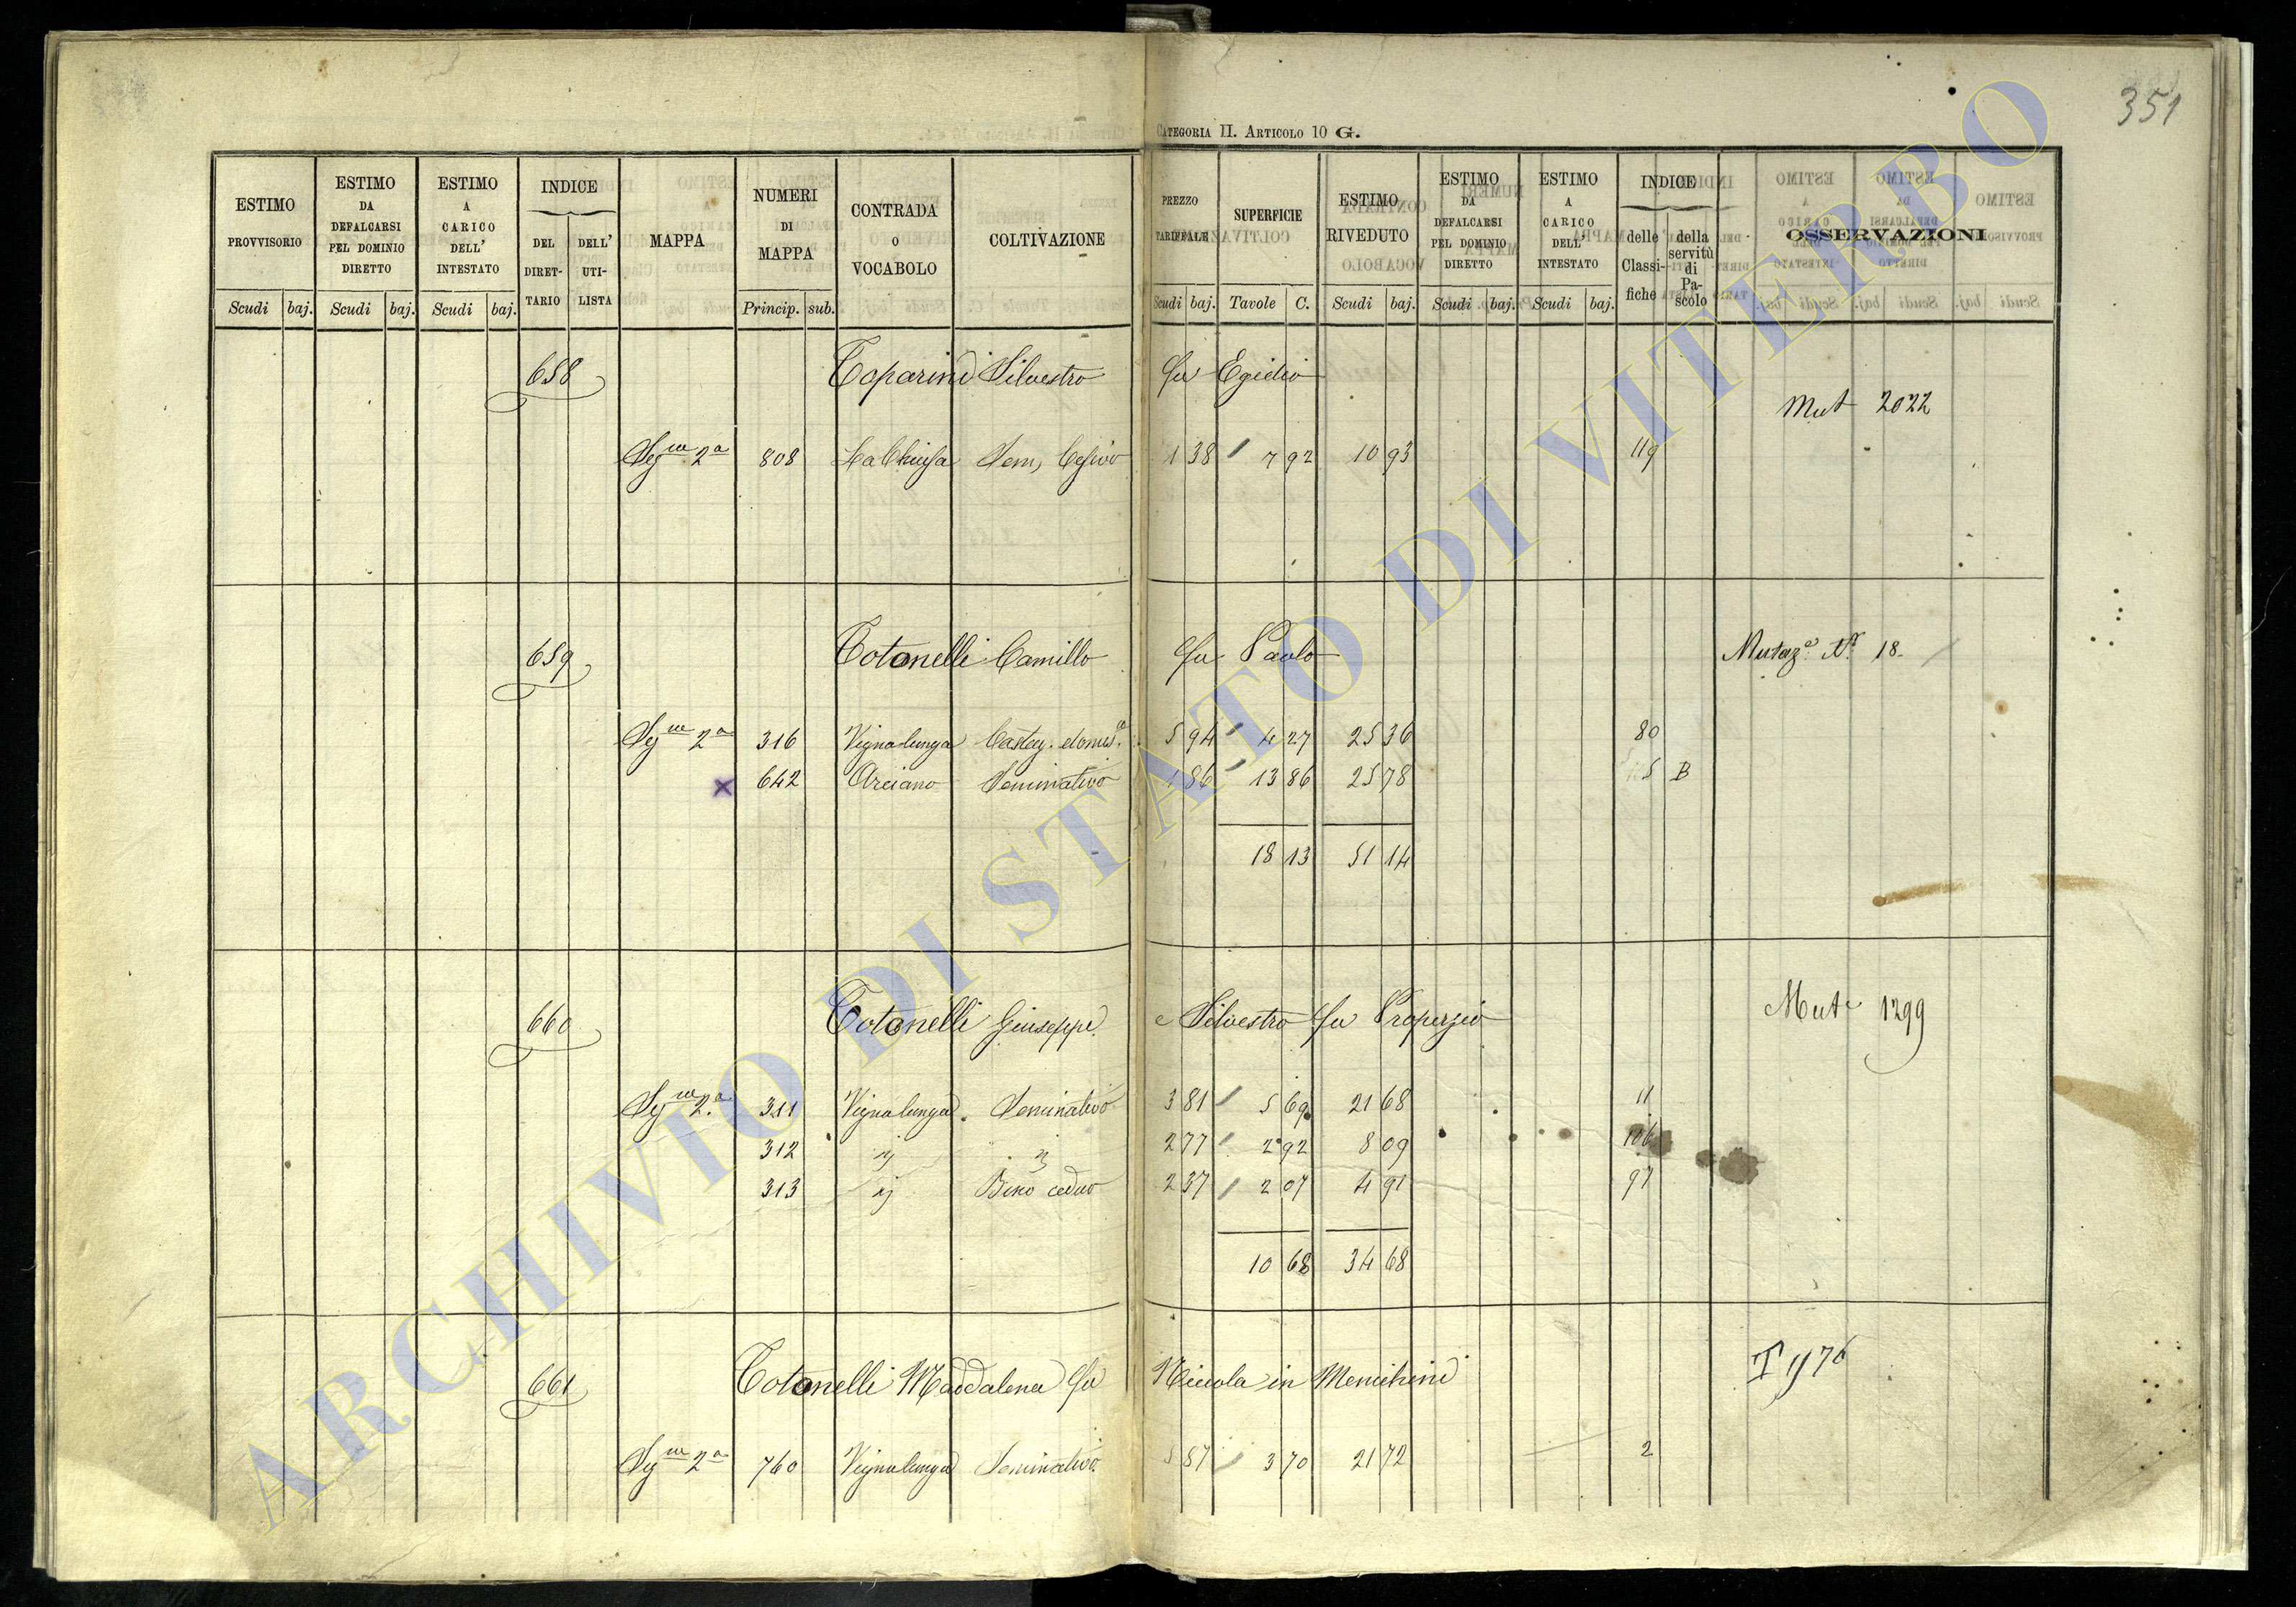 351
CATEGORIA II. ARTICOLO 10 G.
ESTIMO PROVVISORIO ESTIMO DA DEFALCARSI PEL DOMINIO DIRETTO ESTIMO A CARICO DELL' INTESTATO INDICE DEL DIRETTARIO DELL' UTILISTA MAPPA NUMERI DI MAPPA CONTRADA O VOCABOLO COLTIVAZIONE PREZZO TARIFFALE SUPERFICIE ESTIMO RIVEDUTO ESTIMO DA DEFALCARSI PEL DOMINIO DIRETTO ESTIMO A CARICO DELL' INTESTATO INDICE delle Classifiche della servitù di Pascolo OSSERVAZIONI
Scudi baj. Scudi baj. Scudi baj. Princip. sub. Scudi baj. Tavole C. Scudi baj. Scudi baj. Scudi baj.
658 Toparini Silvestro fu Egidio
Mut 2022
Segne 2a 808 La Chiusa Sem, Cesivo 1 38 7 92 10 93 119
659 Totonelli Camillo fu Paolo Mutaz.e N.o 18
Segne 2a 316 Vignalunga Castag. domes.co 5 94 4 27 25 36 80
x 642 Arciano Seminativo 1 86 13 86 25 78 5 B
18 13 51 14
660 Totonelli Giuseppe e Silvestro fu Properzio Mut 1299
Segne 2a 311 Vignalunga Seminativo 3 81 5 69 21 68 11
312 2 77 2 92 8 09 106
313 Bosco ceduo 2 37 2 07 4 91 97
10 68 34 68
661 Totonelli Maddalena fu Niccola in Menichini
Segne 2a 760 Vignalunga Seminativo 5 87 3 70 21 72 2
ARCHIVIO DI STATO DI VITERBO